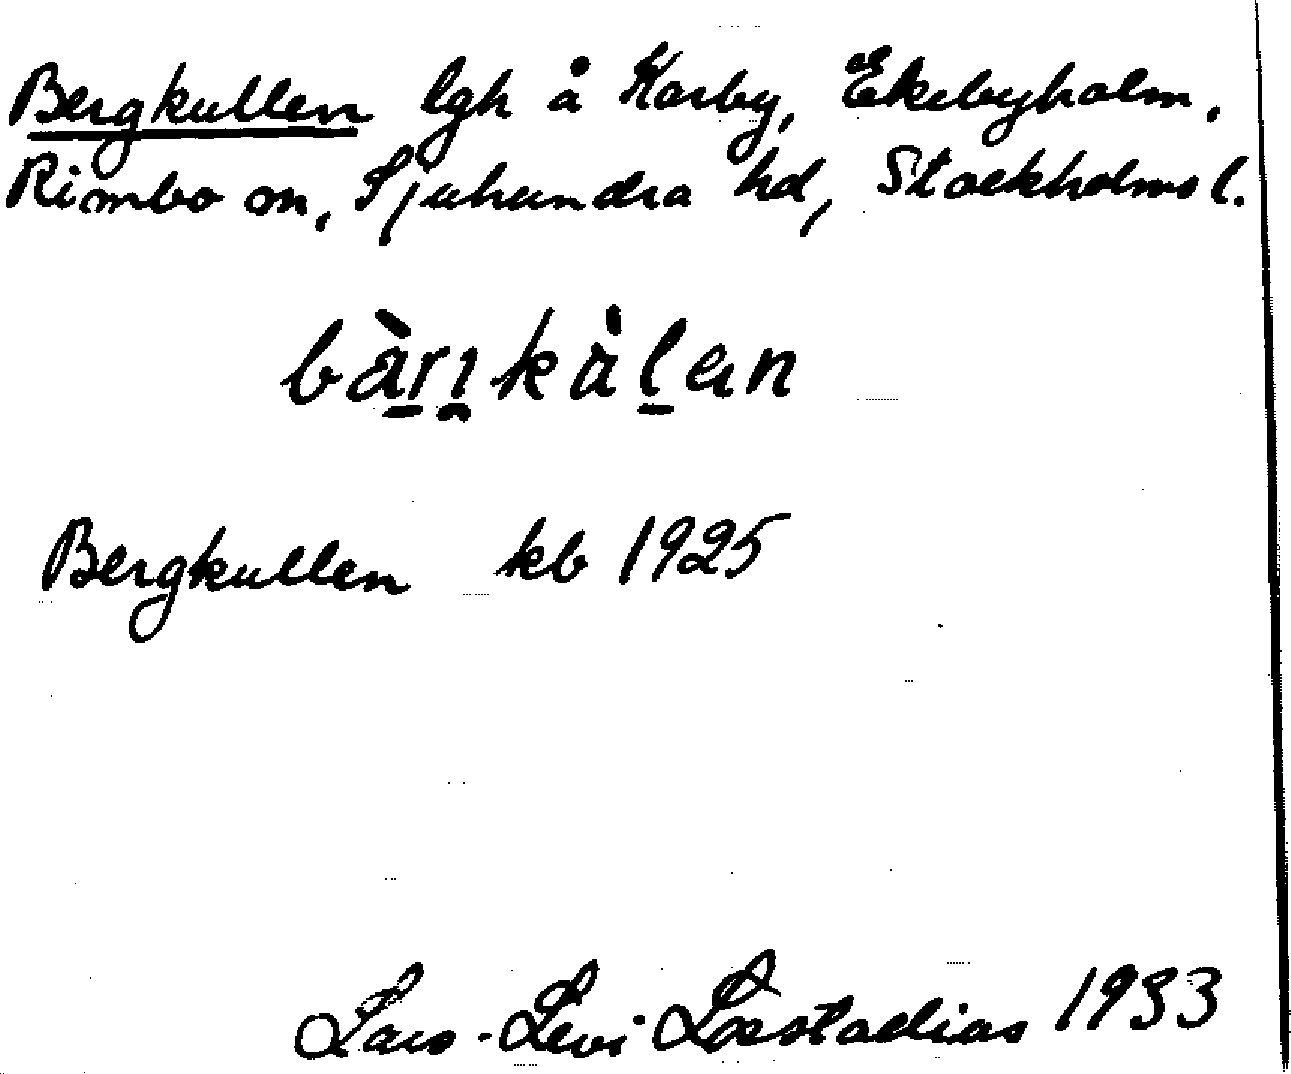 Bergkullen lgh å Karby, Ekebyholm,
Rimbo sn, Sjuhundra hd, Stockholms l.
bàrıkàlan
Bergkullen kb 1925
Lars-Levi Læstadius 1933